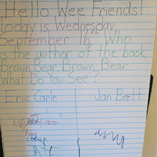 Hello Wee Friends!
Today is Wednesday,
September 16th. Who
is the author of the book
Brown Bear, Brown Bear
What Do You See?
Eric Carle Jan Brett